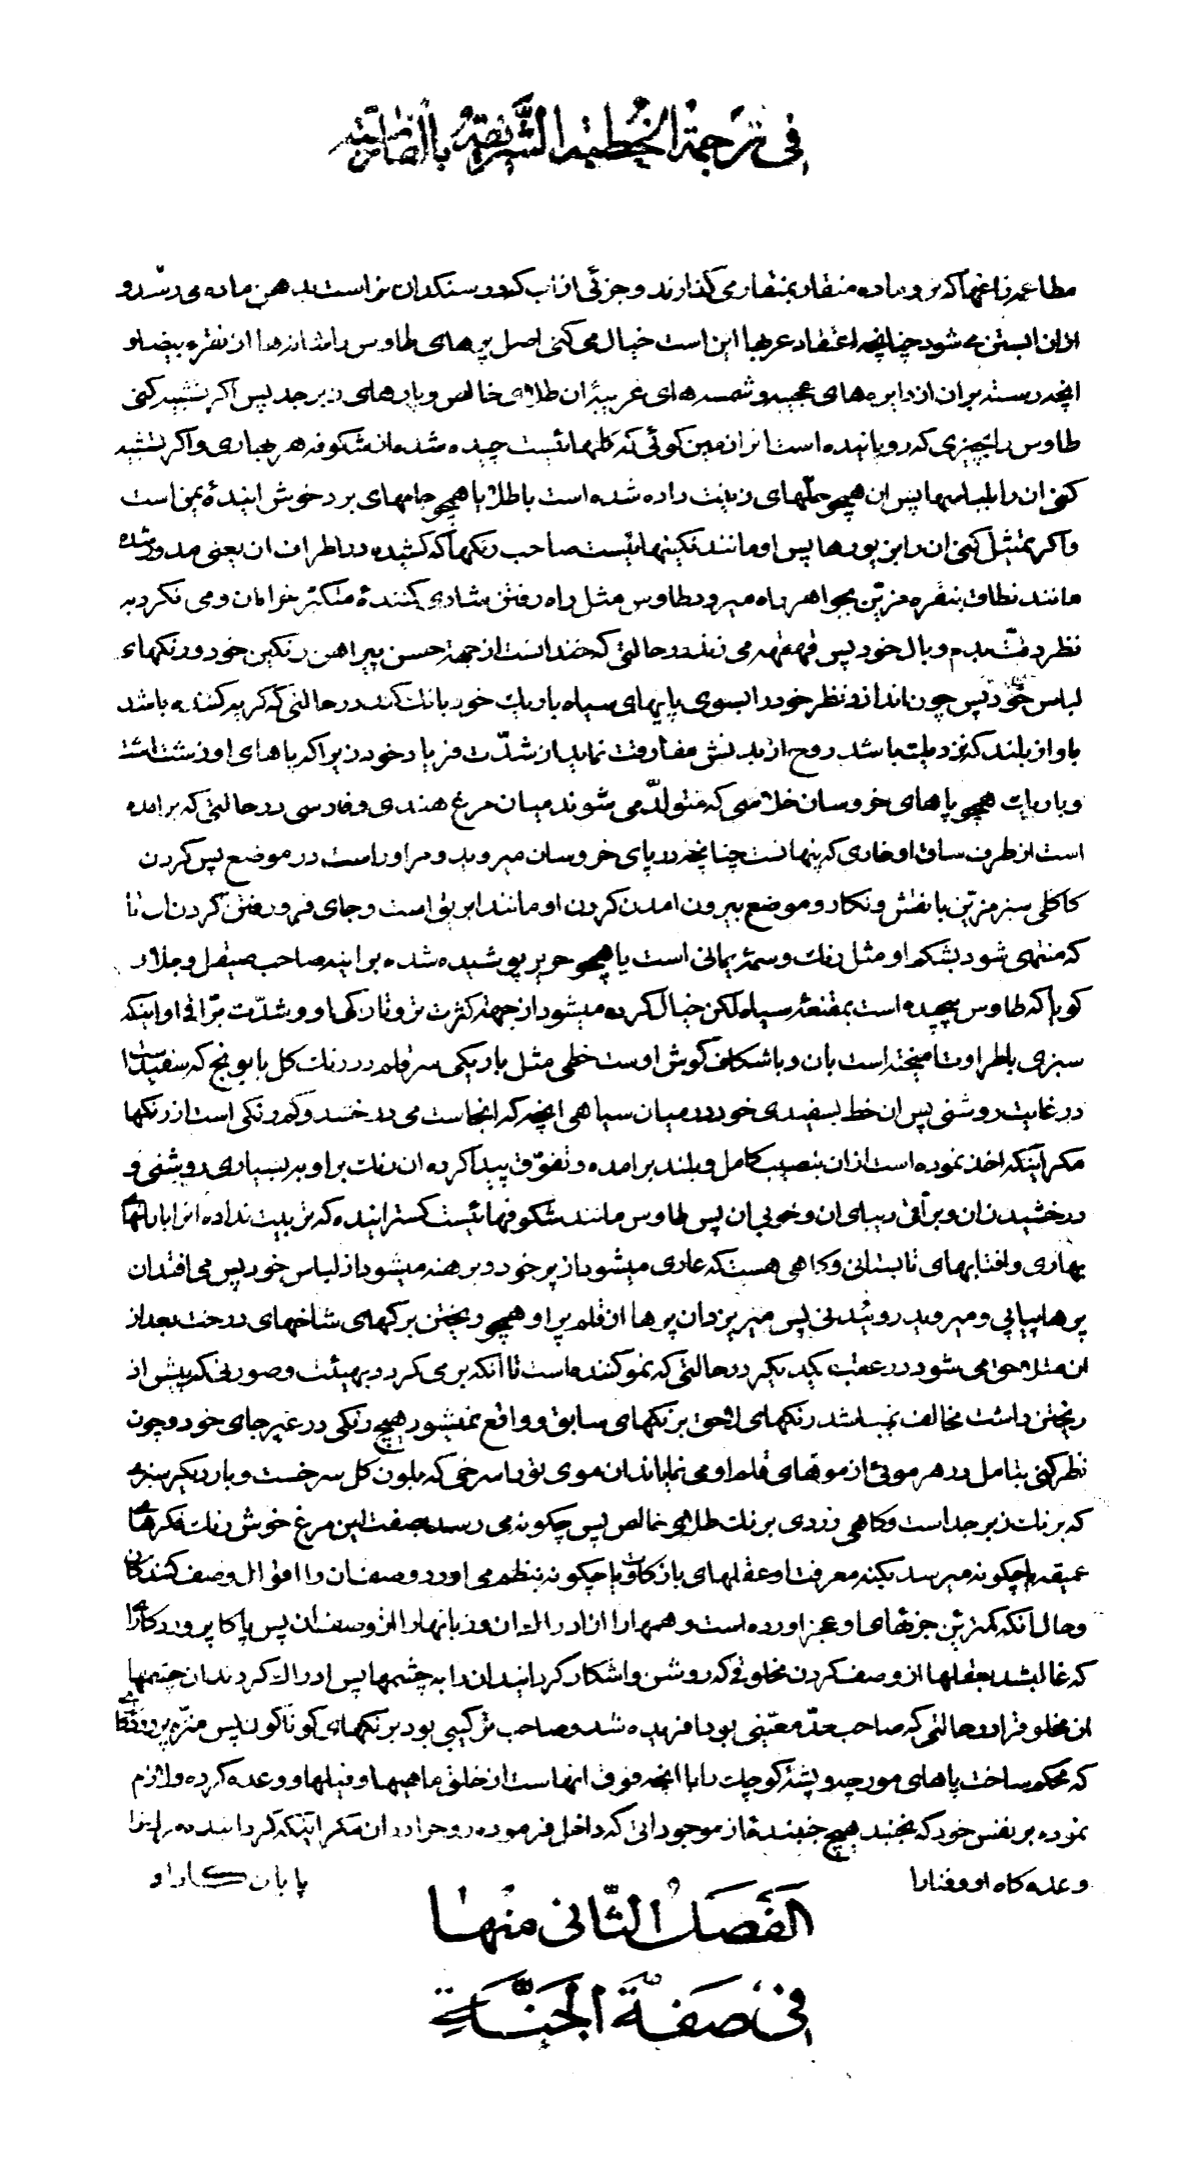 فی ترجمة الخطبة الشریفة بالفارسیّة
مطاعمه زاغها که نر و ماده منقار بمنقار می گذارند و جزئی از اب که در سنکدان نر است بدهن ماده می رسد و
از ان ابستن می شود چنانچه اعتقاد عربها این است خیال می کنی اصل پرهای طاوس را شانه ها از نقره بیضا و
انچه رسته بر ان از دایره های عجیبه و شمسه های غریبهٔ ان طلای خالص و پارهای زبرجد پس اکر تشبیه کنی
طاوس را بچیزی که رویانیده است انرا زمین کوئی که کلهائیست چیده شده از شکوفه هر بهاری و اکر تشبیه
کنی ان را بلباسها پس ان همچو حلّهای زینت داده شده است با طلا یا همچو جامهای برد خوش ایندهٔ یمن است
و اکر تمثیل کنی ان را بزیورها پس او مانند نکینهائیست صاحب رنکها که کشیده در اطراف ان یعنی مدور شده
مانند نطاق بنقره مزیّن بجواهر راه میرود طاوس مثل راه رفتن شادی کنندهٔ متکبّر خرامان و می نکرد به
نظر دقّت بدم و بال خود پس قهقهه می زند در حالتی که خندانست از جهة حسن پیراهن رنکین خود و رنکهای
لباس خود پس چون اندازد نظر خود را بسوی پایهای سیاه باریک خود بانک کند در حالتی که کریه کننده باشد
باواز بلند که نزدیک باشد روح از بدنش مفارقت نماید از شدّت فریاد خود زیرا که پاهای او زشت است
و باریک همچو پاهای خروسان خلاسی که متولّد می شوند میان مرغ هندی و فارسی در حالتی که برامده
است از طرف ساق او خاری که پنهانست چنانچه در پای خروسان میروید و مر او راست در موضع پس کردن
کاکلی سبز مزیّن با نقش و نکار و موضع بیرون امدن کردن او مانند ابریق است و جای فرو رفتن کردن ان تا
که منتهی شود بشکم او مثل رنک وسمهٔ یمانی است یا همچو حریر پوشیده شده بر ایینه صاحب صیقل و جلا و
کویا که طاوس پیچیده است بمقنعهٔ سیاه لکن خیال کرده میشود از جهة کثرت تر و تازکی او و شدّت برّاقی او اینکه
سبزی با طراوت امیخته است بان و با شکاف کوش اوست خطی مثل باریکی سر قلم در رنک کل بابونج که سفید است
در غایت روشنی پس ان خط بسفیدی خود در میان سیاهی انچه که انجاست می درخشد و کم رنکی است از رنکها
مکر اینکه اخذ نموده است از ان بنصیب کامل و بلند برامده و تفوّق پیدا کرده ان رنک بر او به بسیاری روشنی و
درخشیدن ان و برّاقی دیبای ان و خوبی ان پس طاوس مانند شکوفهائیست کسترانیده که تربیت نداده انرا بارانهای
بهاری و افتابهای تابستانی و کاهی هست که عاری میشود از پر خود و برهنه میشود از لباس خود پس می افتد ان
پرها پیاپی و میروید روئیدنی پس میریزد ان پرها از قلم پر او همچو ریختن برکهای شاخهای درخت بعد از
ان متلاحق می شود در عقب یکدیکر در حالتی که نمو کننده است تا انکه بر می کردد بهیئت و صورتی که پیش از
ریختن داشت مخالف نمیباشد رنکهای لاحق برنکهای سابق و واقع نمیشود هیچ رنکی در غیر جای خود و چون
نظر کنی بتامل در هر موئی از موهای قلم او می نمایاند ان موی تو را سرخی که بلون کل سرخست و بار دیکر سبزی
که برنک زبرجد است و کاهی زردی برنک طلای خالص پس چکونه می رسد بصفت این مرغ خوش رنک فکرهای
عمیقه یا چکونه میرسد بکنه معرفت او عقلهای با زکاوت یا چکونه بنظم می اورد وصف ان را اقوال وصف کنندکان
و حال انکه کمترین جزئهای او عجز اورده است وهمها را از ادراک ان و زبانها را از وصف ان پس پاکا پروردکاری
که غالب شد بعقلها از وصف کردن مخلوقی که روشن و اشکار کردانید ان را به چشمها پس ادراک کردند ان چشمها
ان مخلوق را در حالتی که صاحب حدّ معیّنی بود افریده شد و صاحب ترکیبی بود برنکهای کوناکون پس منزّه پروردکاری
که محکم ساخت پاهای مورچه و پشّهٔ کوچک را با انچه فوق انهاست از خلق ماهیها و فیلها و وعده کرده و لازم
نموده بر نفس خود که نجنبد هیچ جنبندهٔ از موجوداتی که داخل فرموده روح را در ان مکر اینکه کردانیده مرک را
وعده کاه او و فنا را پایان کار او
الفصل الثّانی منها
فی صفة الجنّة